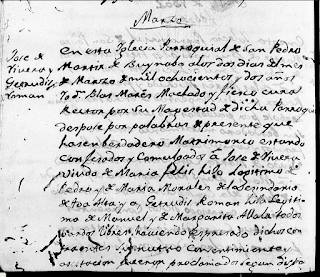 Marzo
Jose de
Rivera y
Getrudis
Roman
En esta Iglecia Parroquial de San Pedro
Martir de Guynabo a los dos dias del mes
de Marzo de mil ochocientos y dos años
Yo Dn. Blas Mares Machado y Fierco cura
Rector por Su Magestad de dicha Parroqa
despose por palabras de presente que
hasen berdadero Matrimonio estando
confesados y Comulgados a Jose de Rivera
viudo de Maria Felis, hilo Legitimo de
Pedro y de Maria Morales de la Segundario
de Toa Alta y a, Getrudis Roman hila Legiti
mo de Manuel y de Margarita Abala todos
pardos libres, haviendo espresado dichos con
trayentes su mutuo Consentimiento y
fueron proclamados segun dispo